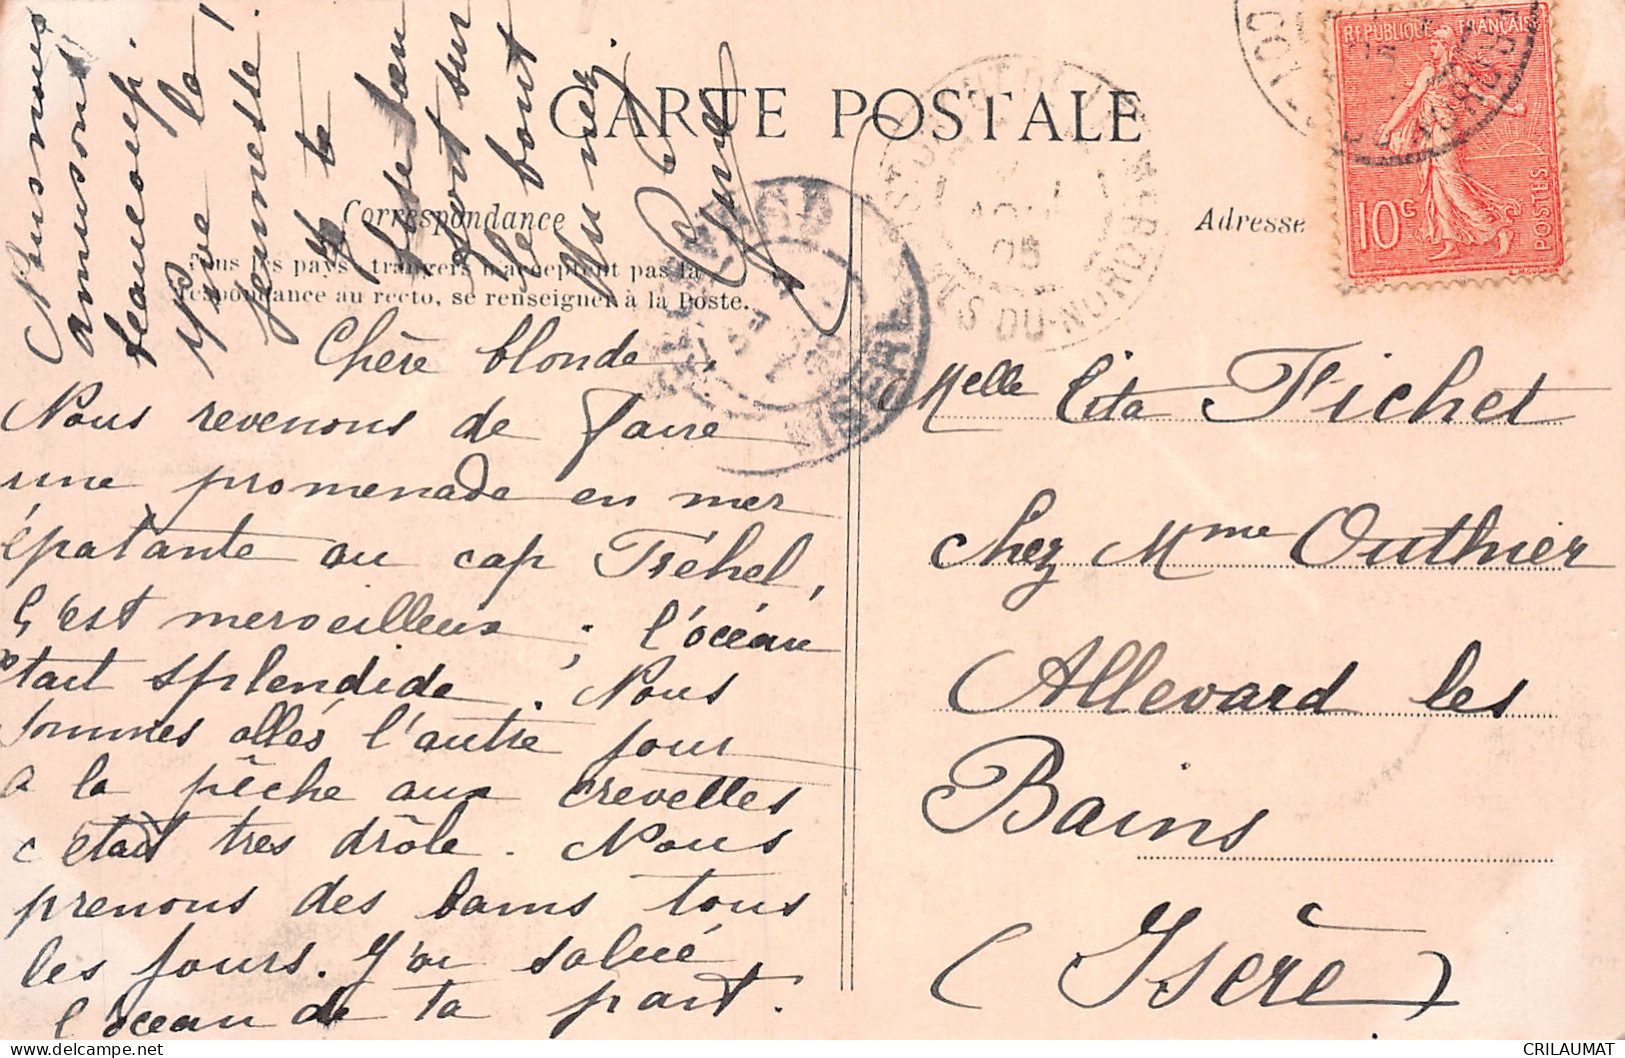 CARTE POSTALE
Correspondance
Tous les pays étrangers n'acceptent pas la
respondance au recto, se renseigner à la Poste.
Adresse
RÉPUBLIQUE FRANÇAISE
10c
POSTES
Chère blonde,
Nous revenons de faire
une promenade en mer
épatante au cap Fréhel,
C'est merveilleux ; l'océan
était splendide. Nous
sommes allés l'autre jour
a la pêche aux crevettes
c'était très drôle. Nous
prenons des bains tous
les jours. J'ai salué
l'océan de ta part.
Nous nous
amusons
beaucoup.
Vive la
jeunesse!
Je te
bise bien
fort sur
le bout
du nez
Melle Cita Fichet
chez Mme Outhier
Allevard les
Bains
(Isère)
CRILAUMAT